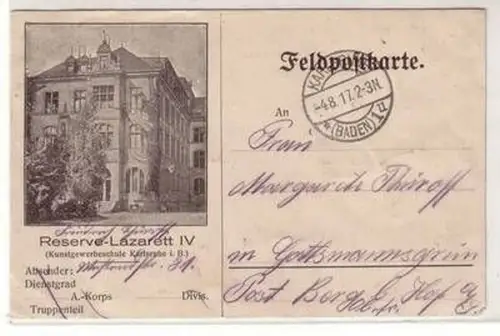 Feldpostkarte.
KARLSRUHE
-4.8.17.2-3N.
*(BADEN)1
An
Frau
Margareth Thüroff
in Gottsmannsgrün
Post Berg b. Hof
Reserve-Lazarett IV
(Kunstgewerbeschule Karlsruhe i. B.)
Absender:
Dienstgrad
A.-Korps Divis.
Truppenteil